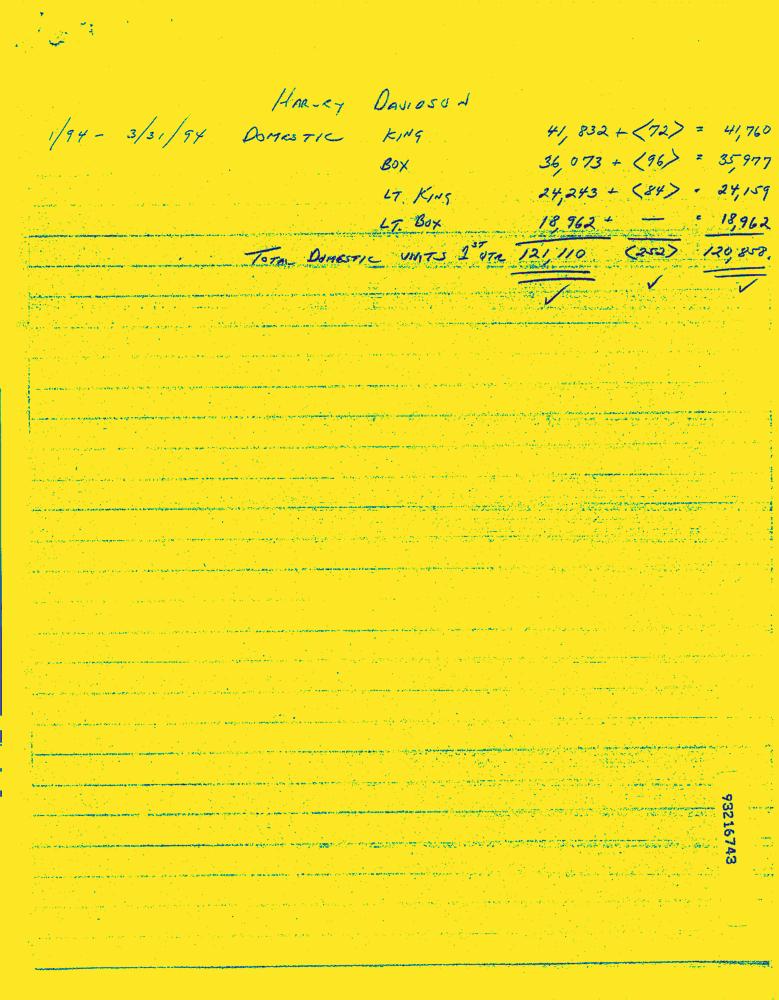 HARLEY DAVIDSON
1/94 - 3/31/94 DOMESTIC KING 41,832 + <72> = 41,760
BOX 36,073 + <96> = 35,977
LT. KING 24,243 + <84> = 24,159
LT. BOX 18,962 + — = 18,962
TOTAL DOMESTIC UNITS 1ST QTR 121,110 <252> 120,858.
✓ ✓ ✓
93216743